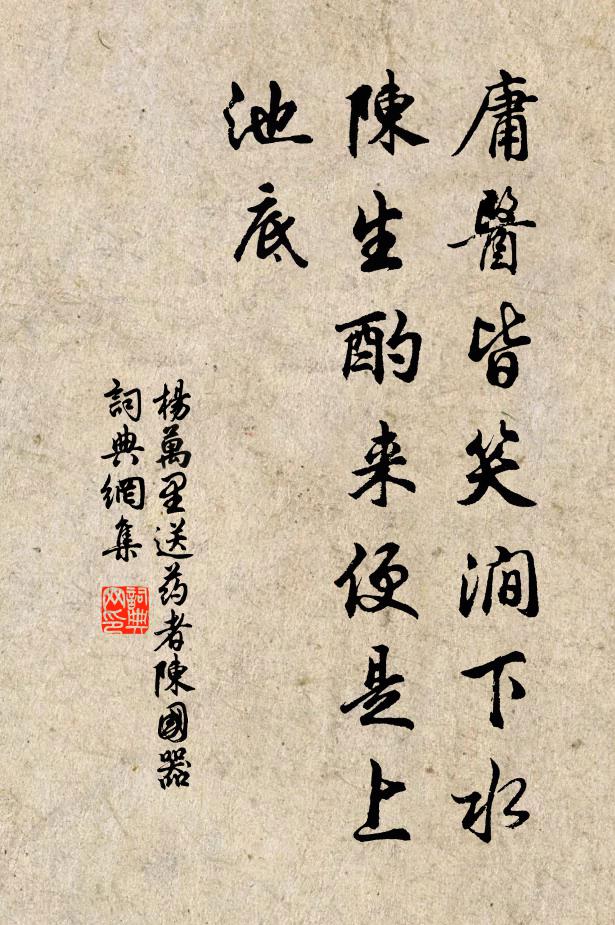 庸醫皆笑澗下水
陳生酌来便是上
池底
楊萬里送药者陳國器
詞典網集
詞典网印